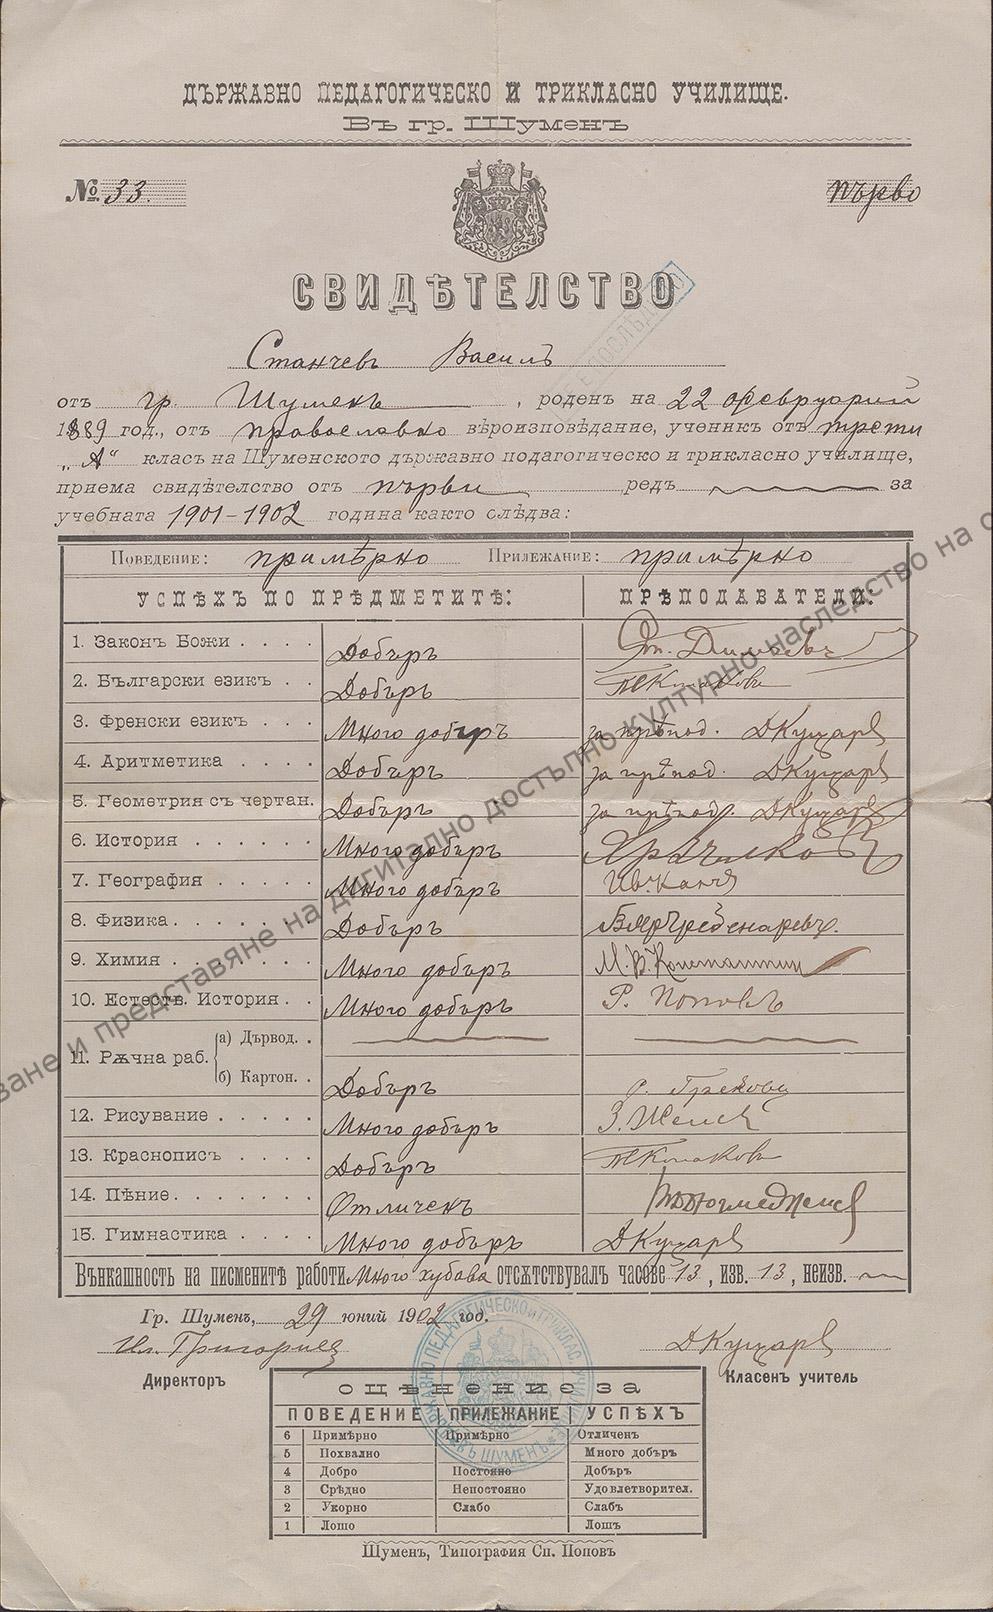 ДЪРЖАВНО ПЕДАГОГИЧЕСКО И ТРИКЛАСНО УЧИЛИЩЕ.
Въ гр. Шуменъ
№ 33.
първо
СВИДѢТЕЛСТВО
Станчевъ Василъ
отъ гр. Шуменъ, роденъ на 22 февруарий
1889 год., отъ православно вѣроизповѣдание, ученикъ отъ трети
„А“ класъ на Шуменското държавно педагогическо и трикласно училище,
приема свидѣтелство отъ първи редъ за
учебната 1901–1902 година както слѣдва:
Поведение: примѣрно Прилежание: примѣрно
УСПѢХЪ ПО ПРѢДМЕТИТѢ: ПРѢПОДАВАТЕЛИ:
1. Законъ Божи . . . . Добъръ
2. Български езикъ . . Добъръ
3. Френски езикъ . . . Много добъръ за прѣпод. ДКушарѣ
4. Аритметика . . . . Добъръ за прѣпод. ДКушарѣ
5. Геометрия съ чертан. Добъръ за прѣпод. ДКушарѣ
6. История . . . . . . Много добъръ
7. География . . . . . Много добъръ
8. Физика . . . . . . . Добъръ
9. Химия . . . . . . . Много добъръ М. В. Константин
10. Естеств. История . . Много добъръ Р. Поповъ
11. Рѫчна раб. а) Дървод. .
б) Картон. . Добъръ
12. Рисувание . . . . . Много добъръ
13. Краснописъ . . . . Добъръ
14. Пѣние . . . . . . . Отличенъ
15. Гимнастика . . . . Много добъръ ДКушарѣ
Вънкашность на писменитѣ работи Много хубава отсѫтствувалъ часове 13, изв. 13, неизв.
Гр. Шуменъ, 29 юний 1902 год.
Ил. Григориев ДКушарѣ
Директоръ Класенъ учитель
ОЦѢНЕНИЕ ЗА
ПОВЕДЕНИЕ ПРИЛЕЖАНИЕ УСПѢХЪ
6 Примѣрно Примѣрно Отличенъ
5 Похвално Много добъръ
4 Добро Постояно Добъръ
3 Срѣдно Непостояно Удовлетворител.
2 Укорно Слабо Слабъ
1 Лошо Лошъ
Шуменъ, Типография Сп. Поповъ
ване и представяне на дигитално достъпно културно наследство на о